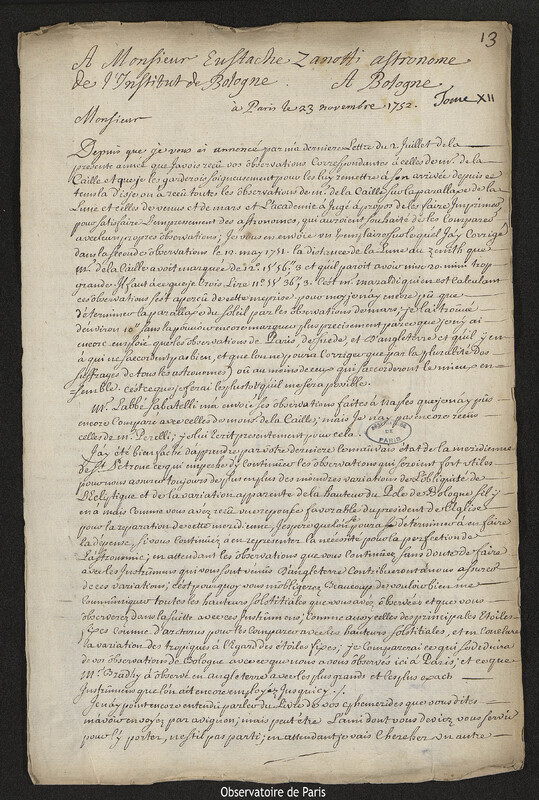 13
A Monsieur Eustache Zanotti astronome
de l'Institut de Bologne. A Bologne
à Paris le 23 novembre 1752. Tome XII
Monsieur
Depuis que je vous ai annoncé par ma derniere Lettre du 2 Juillet de la
presente année que j'avois reçu vos observations correspondantes à celles de m. de la
Caille et que je les garderois soigneusement pour les luy remettre à son arrivée depuis ce
tems la dis je on a reçu toute les observations de m. de la Caille sur la parallaxe de la
Lune et celles de venus et de mars et L'academie a jugé apropos de les faire Imprimer
pour satisfaire L'empressement des astronomes, qui auroient souhaité de les comparer
avec leurs propres observations; Je vous en envoie un Exemplaire sur lequel J'ay Corrigé
dans la observations le 12 may 1751. la distance de la Lune au Zenith que
Mr. de la Caille avoit marquée de et qu'il paroit avoir mis 20 min trop
grande. Il faut à ce que je Crois Lire C'est m. maraldi qui en Calculant
ces observations s'est aperçu de cette meprise pour moy je n'ay encore pû que
determiner la parallaxe du soleil par les observations de mars; je la trouve
d'environ 10" sans la pouvoir encore marquer plus precisement parce que je n'y ai
encore emploié que les observations de Paris, de suede, et d'angleterre et qu'il y en
à qui ne s'accordent pas bien, et que l'on ne poura corriger que par la pluralité des
suffrages de tous les astronomes, où au moins de ceux qui s'accorderont le mieux en-
semble. c'est ce que je ferai le plustot qu'il me sera possible.
Mr. L'abbé Sabatelli m'a envoié ses observations faites à naples que je n'ay pû
encore Comparer avec celles de mr. de la Caille; mais Je n'ay pas encore reçu
celles de m. Perelli; je lui Ecrit presentement pour cela.
OBSERVATOIRE DE PARIS
J'ay été bien faché d'apprendre par votre derniere Le mauvais état de la meridienne
de St. Petrone ce qui empeche d'y Continuer les observations qui seroient fort utiles
pour nous assurer toujours de plus en plus des moindres variations de L'obliquité de
L'ecliptique et de la variation apparente de la hauteur du Pole de Bologne s'il y
en a mais Comme vous avez reçu une reponse favorable du president de L'Eglise
pour la reparation de cette meridienne, J'espere que l'on se pourra determiner à en faire
la depense, si vous continuez a en representer la necessité pour la perfection de
L'astronomie; en attendant les observations que vous Continuez sans doute de faire
avec les Instrumens qui vous sont venus D'angleterre Contribueront à nous assurer
de ces variations; c'est pourquoy vous m'obligerez Beaucoup de vouloir bien me
communiquer toutes les hauteurs solstitiales que vous avez observées et que vous
observerez dans la suitte avec ces Instrumens; comme aussy celles des principales Etoiles
fixes Comme d'arcturus pour les Comparer avec les hauteurs solstitiales, et en Conclure
la variation des tropiques à L'egard des étoiles fixes; Je Comparerai ce qui se deduira
de vos observations de Bologne avec ce que nous avons observés ici à Paris; et ce que
Mr. Bradley à observé en angleterre avec les plus grands et les plus exacts
Instrumens que l'on ait encore employez Jusqu'icy./.
Je n'ay point encore entendu parler du Livre de vos ephemerides que vous dites
m'avoir envoyez par avignon; mais peut être L'ami dont vous deviez vous servir
pour l'y porter, n'est il pas parti; en attendant Je vais Chercher un autre
Observatoire de Paris